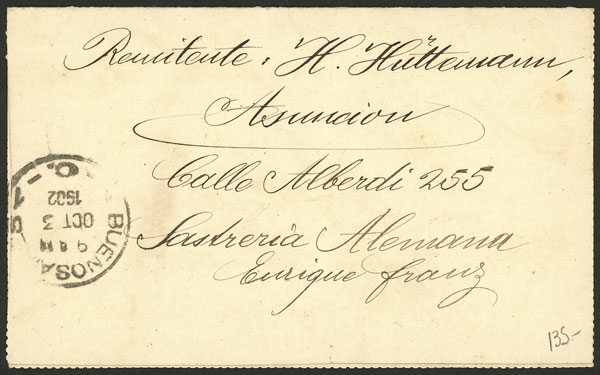 Remitente: H. Hüttemann,
Asuncion
Calle Alberdi 255
Sastreria Alemana
Enrique Franz
BUENOS A
9
OCT 3
1902
135.-